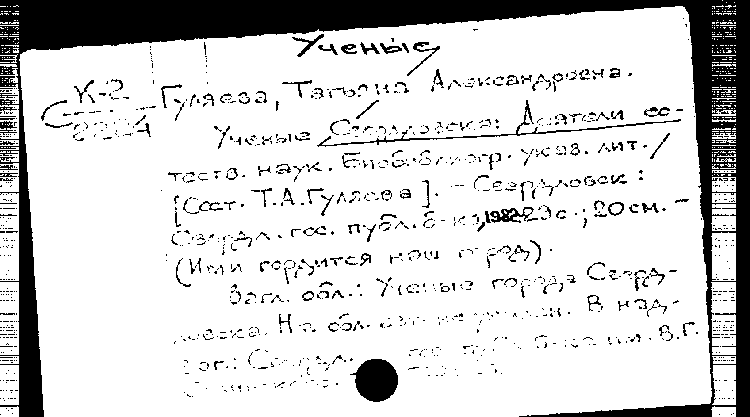 Ученые
К-2 Гуляева, Татьяна Александровна.
Ученые Свердловска: Деятели ес-
теств. наук. Биобиблиогр. указ. лит. /
[Сост. Т.А.Гуляева]. - Свердловск:
Свердл. гос. публ. б-ка, 1982. 29 с.; 20 см. -
(Ими гордится наш город).
Загл. обл.: Ученые города Сверд-
ловска. На обл. авт. не указан. В над-
заг.: Свердл. гос. публ. б-ка им. В.Г.